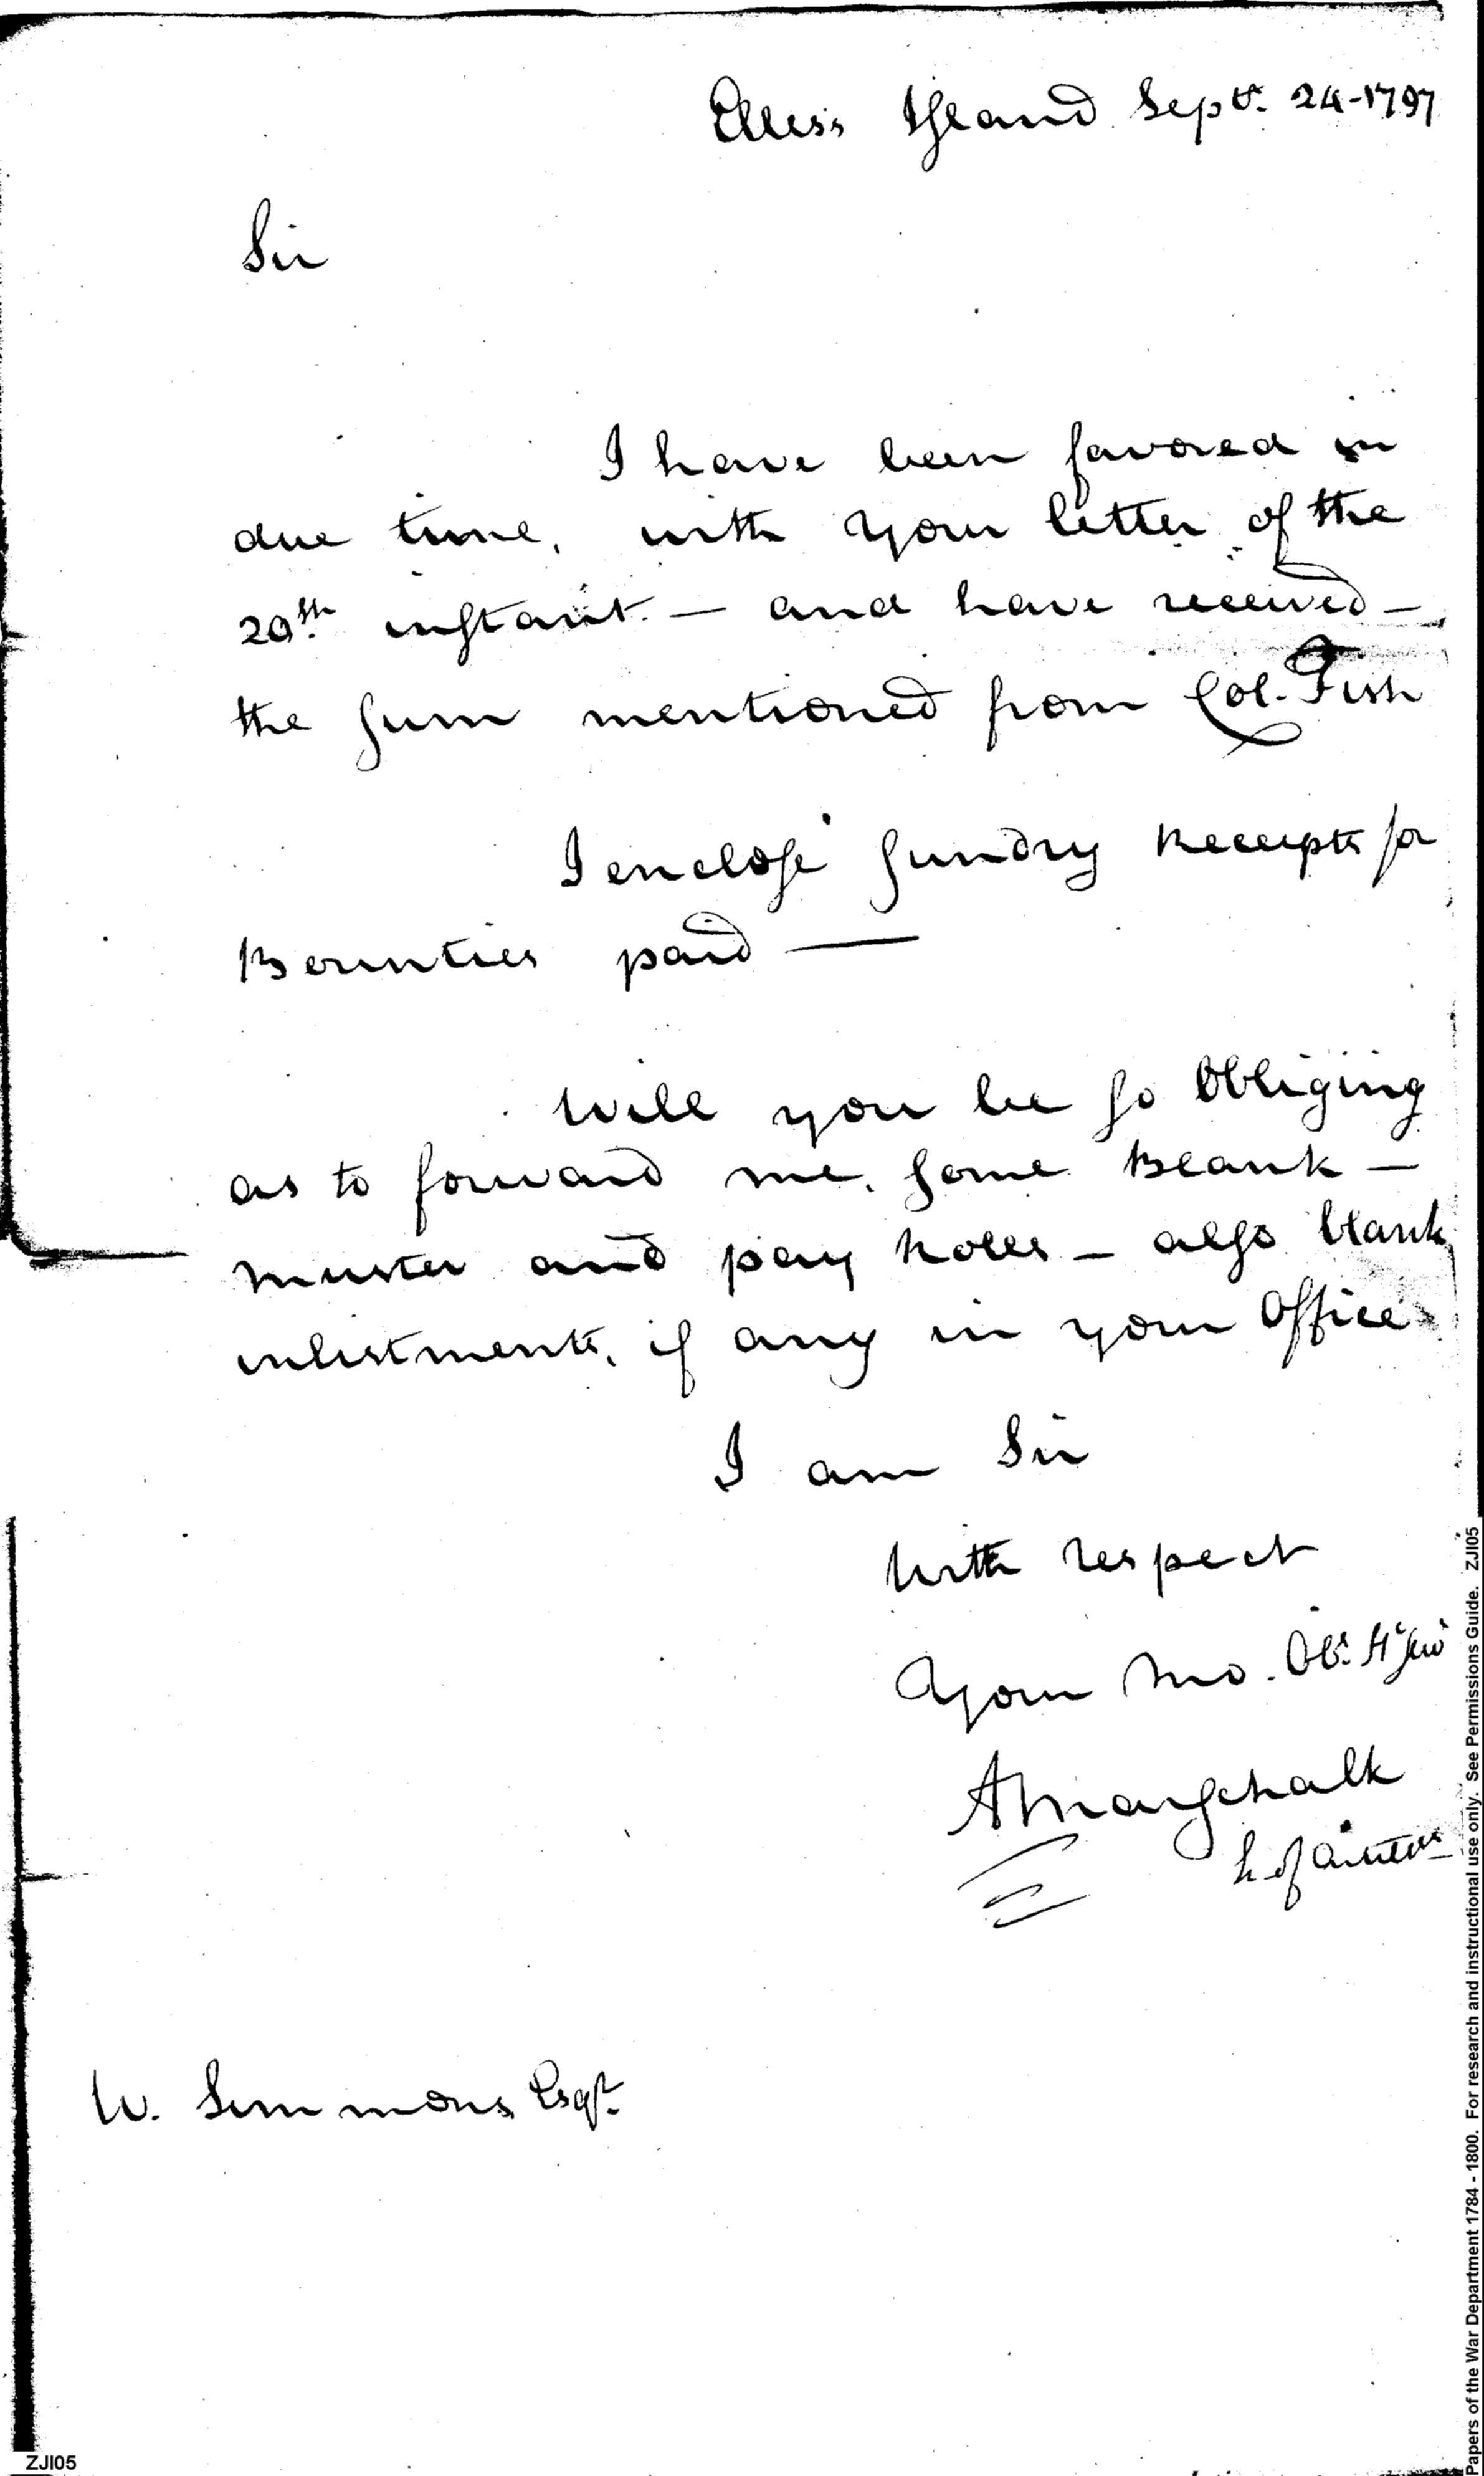 Elless Island Septr. 24-1797
Sir
I have been favored in
due time, with your letter of the
20th instant. — and have received —
the sum mentioned from Col. Fish
I enclose sundry Receipts for
Bounties paid —
Will you be so Obliging
as to forward me, some Blank —
muster and pay Rolls — also blank
inlistments, if any in your Office
I am Sir
With respect
Your Mo. Ob. H Serv
A Marschalk
W. Simmons Esqr.
ZJI05
Papers of the War Department 1784 - 1800. For research and instructional use only. See Permissions Guide. ZJI05